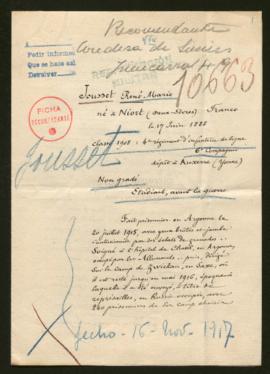 Recomendante
Pedir informe
Que se hace así
Devolver
10663
Jousset René Marie
né à Niort (Deux-Sèvres) France
le 17 Juin 1888
FICHA
classe 1908 : 4e régiment d'infanterie de ligne
6e Compagnie
dépôt à Auxerre (Yonne)
Jousset
Non gradé
Etudiant, avant la guerre
Fait prisonnier en Argonne le
20 juillet 1915, avec
par des éclats de grenades.
Soigné à l'hôpital de
par les Allemands, puis dirigé
sur le Camp de Zwickau, en Saxe, où
il est resté jusqu'en mai 1916, époque à
laquelle il a été envoyé, à titre de
représailles, en Russie occupée, avec
prisonniers de son camp
fecho - 16 - Nov. 1917